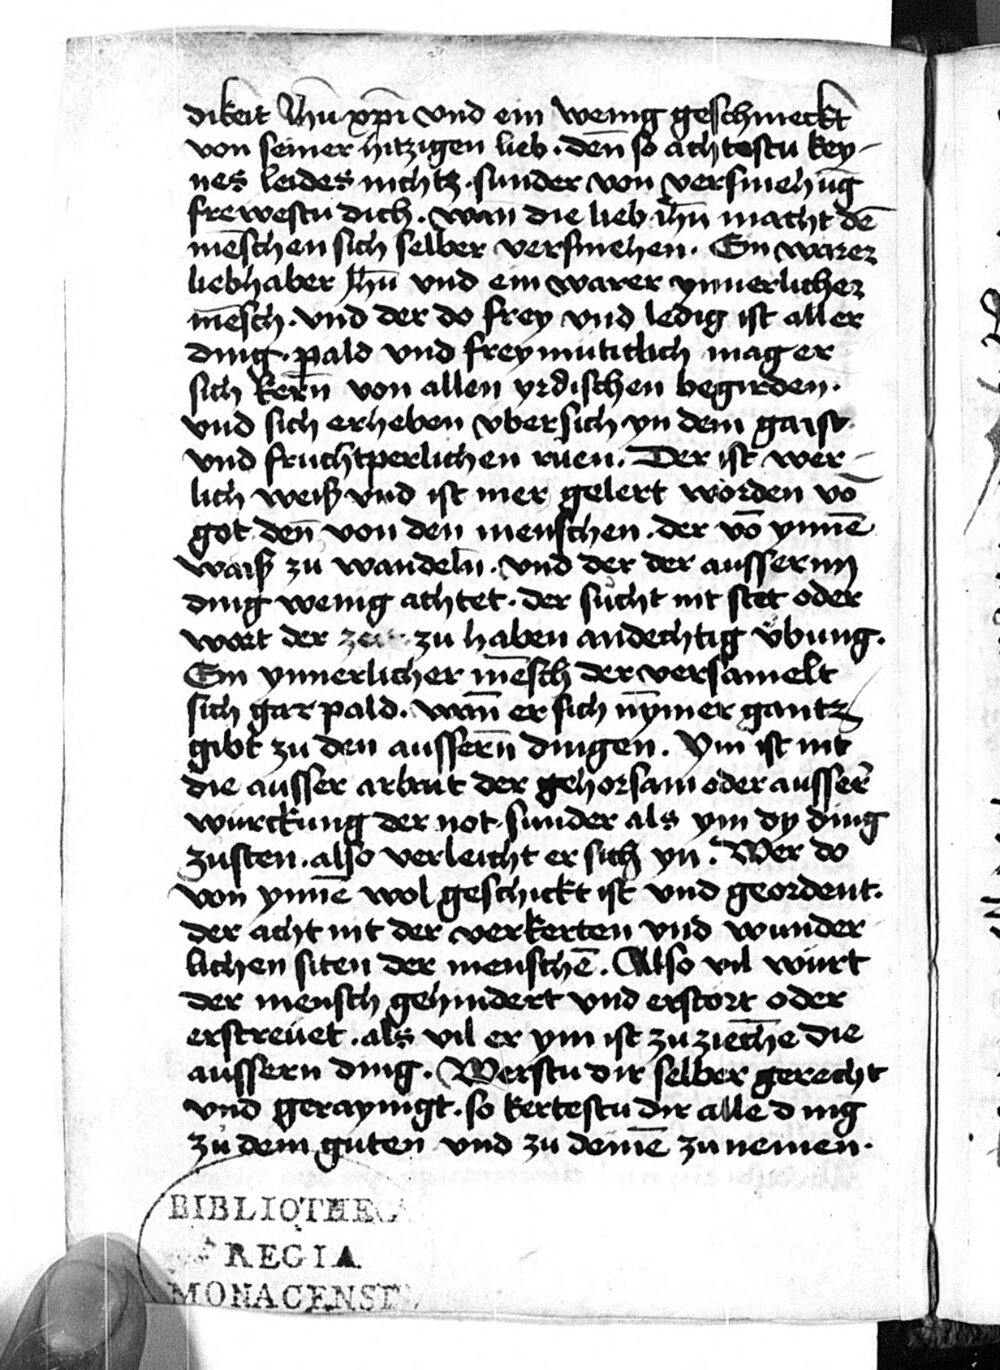 dikeit Jhū xp̄i vnd ein wenig geschmeckt
von seiner hitzigen lieb · den̄ so achtestu key-
nes leides nichtz · sunder von versmehūg
frewestu dich · wan̄ die lieb ih̄u macht dē
mēschen sich selber versmehen · Ein warer
liebhaber Jhū vnd ein warer ynnerlicher
mēsch · vnd der do frey vnd ledig ist aller
ding · pald vnd freymuticlich mag er
sich kern̄ von allen yrdischen begirden ·
vnd sich erheben vbersich yn dem gaist
vnd fruchtperlichen rúen . Der ist wer-
lich weiß vnd ist mer gelert worden vō
got den̄ von den menschen · der vō ynnē
waiß zu wandeln̄ · vnd der der ausserun
ding wenig achtet · der sucht nit stet oder
wort der zeit zu haben andechtig vbung .
Ein ynnerlicher mēsch der versamelt
sich gar pald · wan̄ er sich nȳmer gantz
gibt zu den aussern̄ dingen . Ym ist nit
die ausser arbait der gehorsam oder ausser̄
wurckung der not · sunder als ym dy ding
zusten · also verleicht er sich yn . Wer do
von ynnē wol geschickt ist vnd geordent .
der acht nit der verkerten vnd wunder
lichen siten der menschē . Also vil wurt
der mensch gehindert vnd erstort oder
erstreuet · als vil er ym ist zu ziechē die
aussern ding . Werstu dir selber gerecht
vnd geraynigt · so kertestu dir alle ding
zu dem guten vnd zu deinē zunemen ·
BIBLIOTHECA
REGIA
MONACENSIS